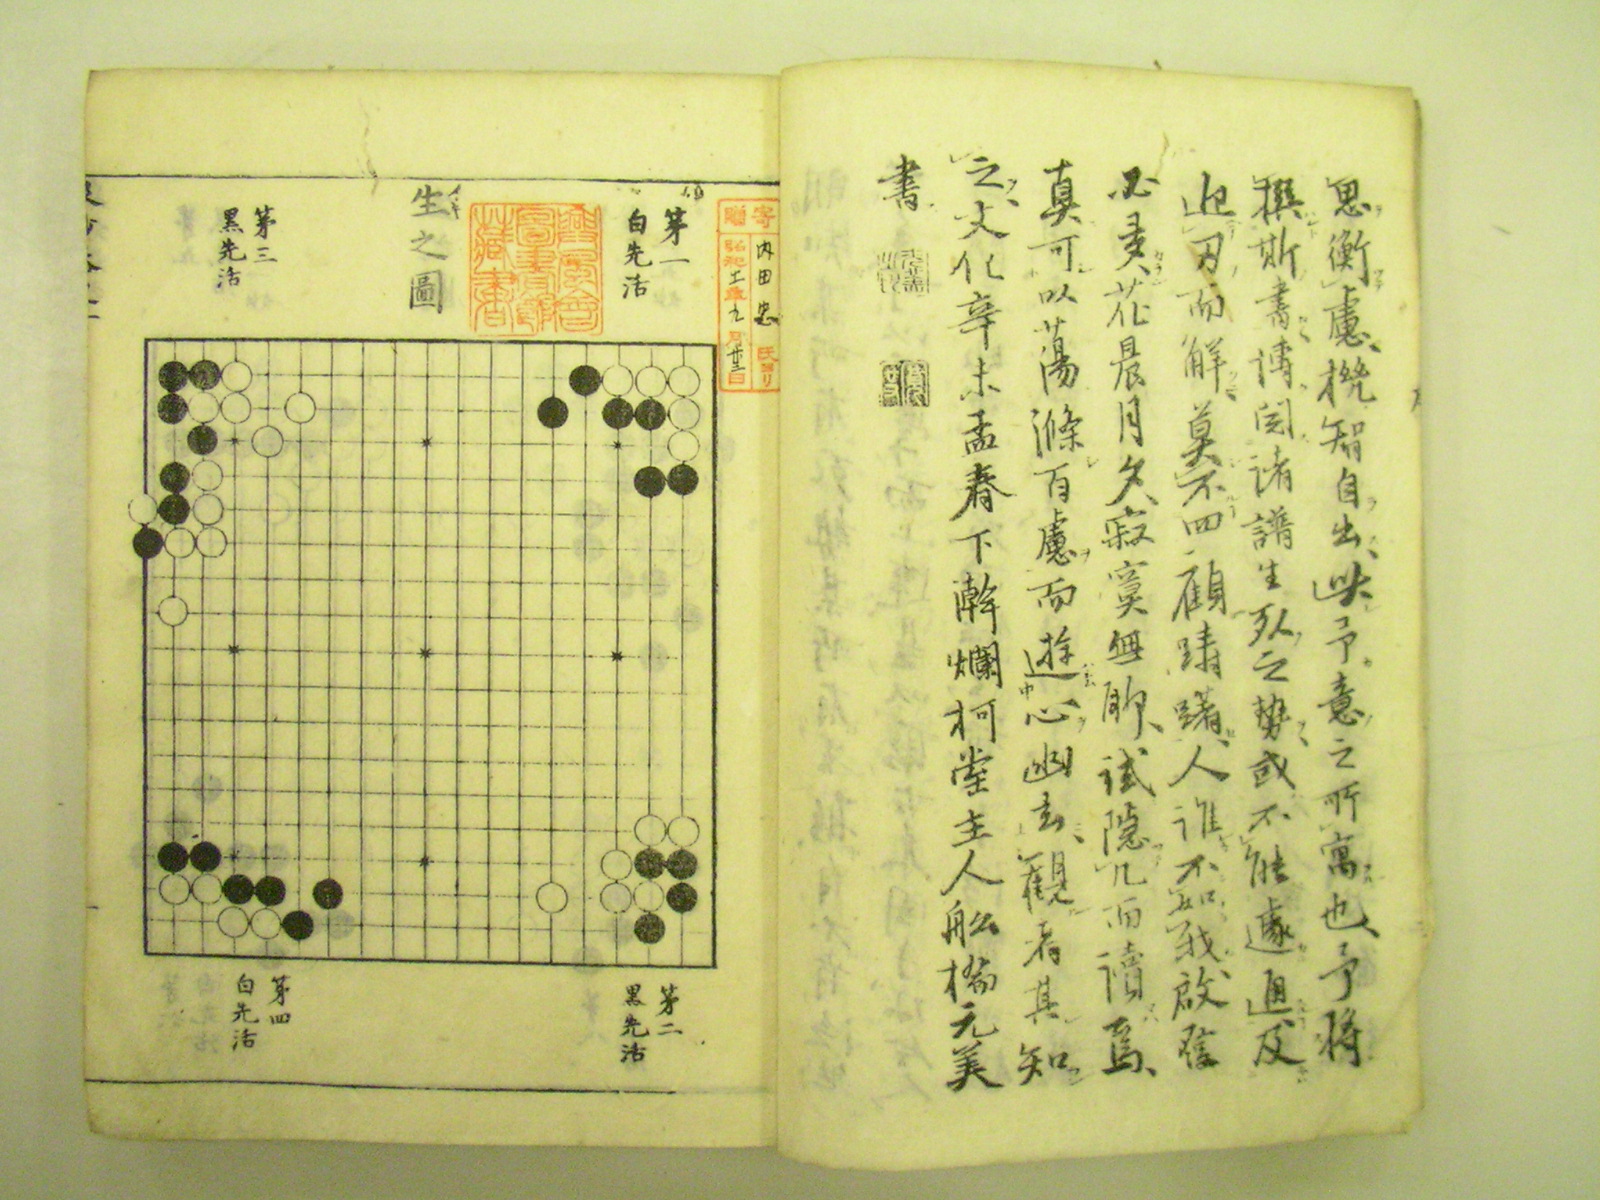 思衡慮機智自出此予意之所寓也予將
撰斯書博閲諸譜生死之勢或不能遽通及
迎刃而解莫不四顧躊躇人誰不知我啟發
必更花晨月夕寂寞無聊試隱几而讀焉
真可以蕩滌百慮而遊心幽玄觀者其知
之文化辛未孟春下澣爛柯堂主人舩橋元美
書
寄贈
内田忠氏ヨリ
第一
白先活
生之圖
第三
黒先活
第二
黒先活
第四
白先活